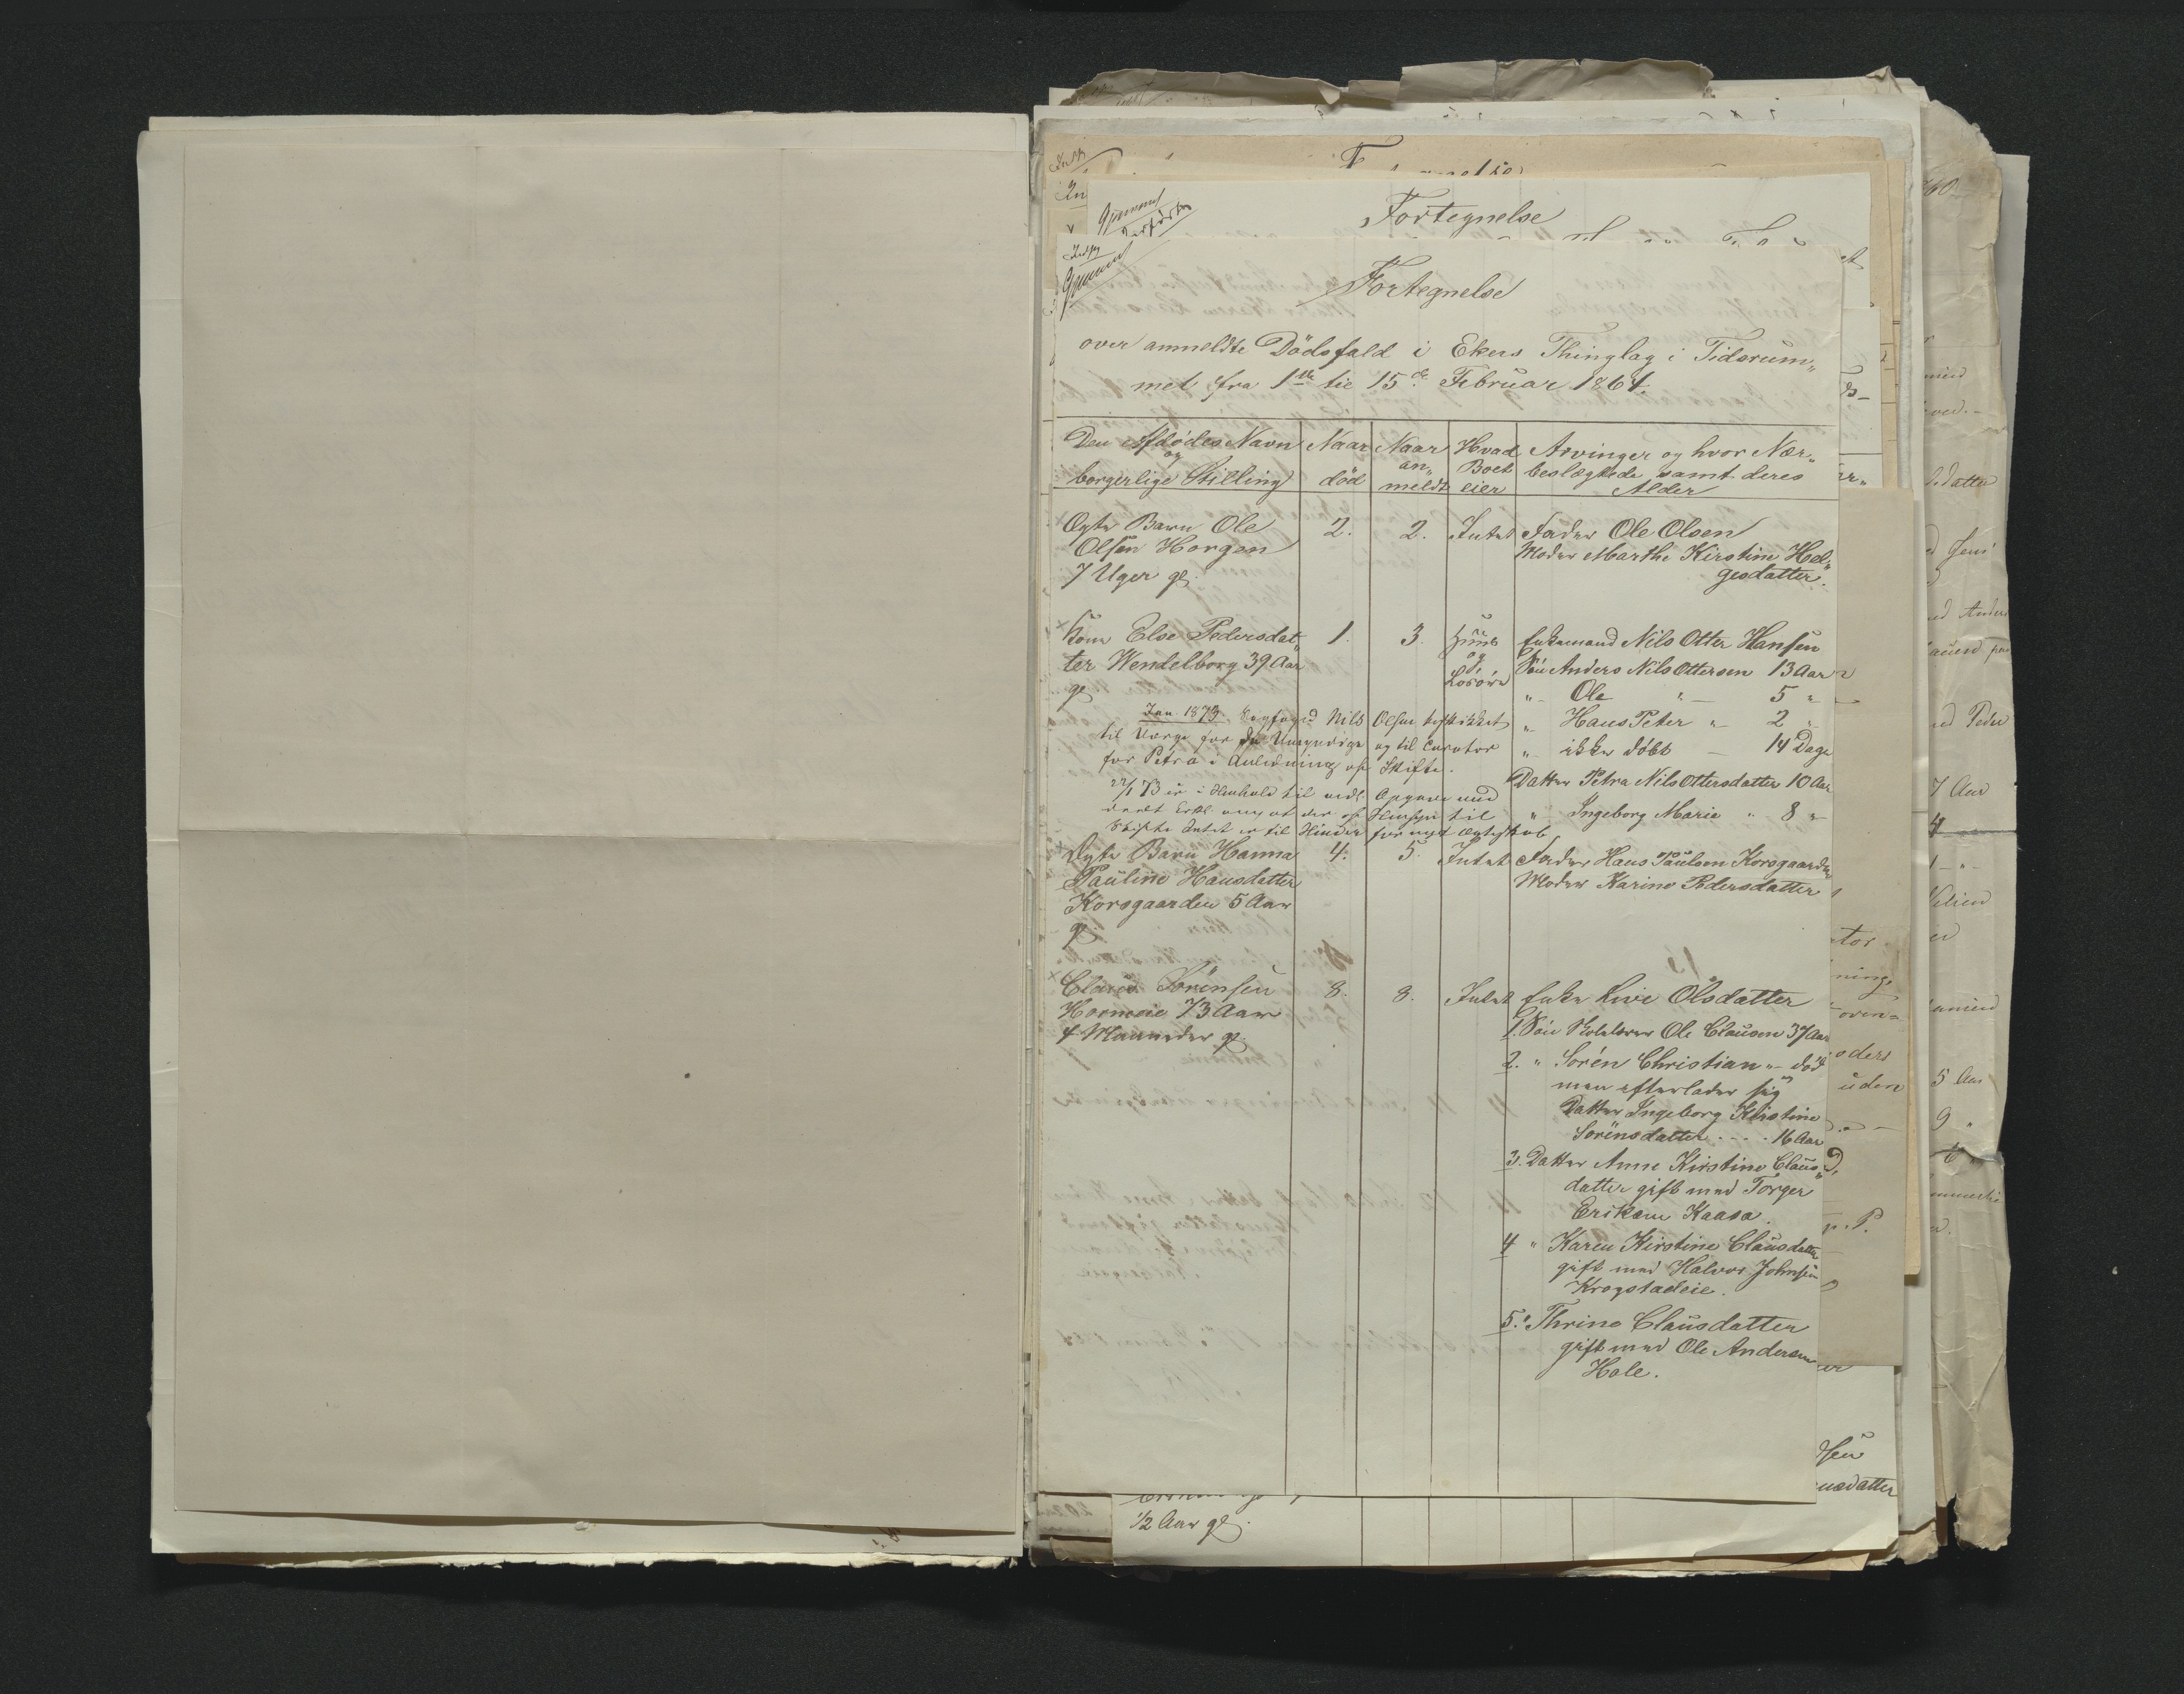 Fortegnelse
Fortegnelse
over anmeldte Dödsfald i Ekers Thinglag i Tidsrum„
met fra 1ste til 15de Februar 1864.
Den Afdödes Navn og borgerlige Stilling
Naar död
Naar an„ meldt
Hvad Boet eier
Arvinger og hvor Nær„ beslægtede samt deres Alder
Ægte Barn Ole
Olsen Horgen
7 Uger gl.
2.
2.
Intet
Fader Ole Olsen
Moder Marthe Kirstine Hel„
gesdatter.
Kone Else Pedersdat„
ter Wendelborg 39 Aar
gl
1.
3.
Huus
og
Lösöre
Enkemand Nils Otter Hansen
Sön Anders Nils Ottersen 13 Aar
„ Ole „ — 5 „
„ Hans Peter „ 2 „
„ ikke döbt — 14 Dage
Datter Petra Nils Ottersdatter 10 Aar
„ Ingeborg Marie „ 8 „
Jan. 1873. Nils Olsen beskikket
til Værge for de Umyndige og til Curator
for Petra i Anledning af Skifte.
22/1 73 er i Henhold til
at der af Hensyn til
Skifte Intet er til Hinder for nyt Ægteskab.
Ægte Barn Hanna
Pauline Hansdatter
Korsgaarden 5 Aar
gl.
4.
5.
Intet
Fader Hans Paulsen Korsgaarden
Moder Karine Pedersdatter
Claus Sörensen
Hormoeie 73 Aar
4 Maaneder gl.
8.
8.
Intet
Enke Live Olsdatter
1. Sön Skolelærer Ole Clausen 37 Aar
2. „ Sören Christian „ — död
men efterlader sig
Datter Ingeborg Kirstine
Sörensdatter . - - . 16 Aar
3. Datter Anne Kirstine Claus„
datter gift med Torger
Eriksen Kaasa.
4 „ Karen Kirstine Clausdatter
gift med Halvor Johnsen
Krogstadeie.
5. „ Thrine Clausdatter
gift med Ole Andersen
Hole.
1/2 Aar gl.